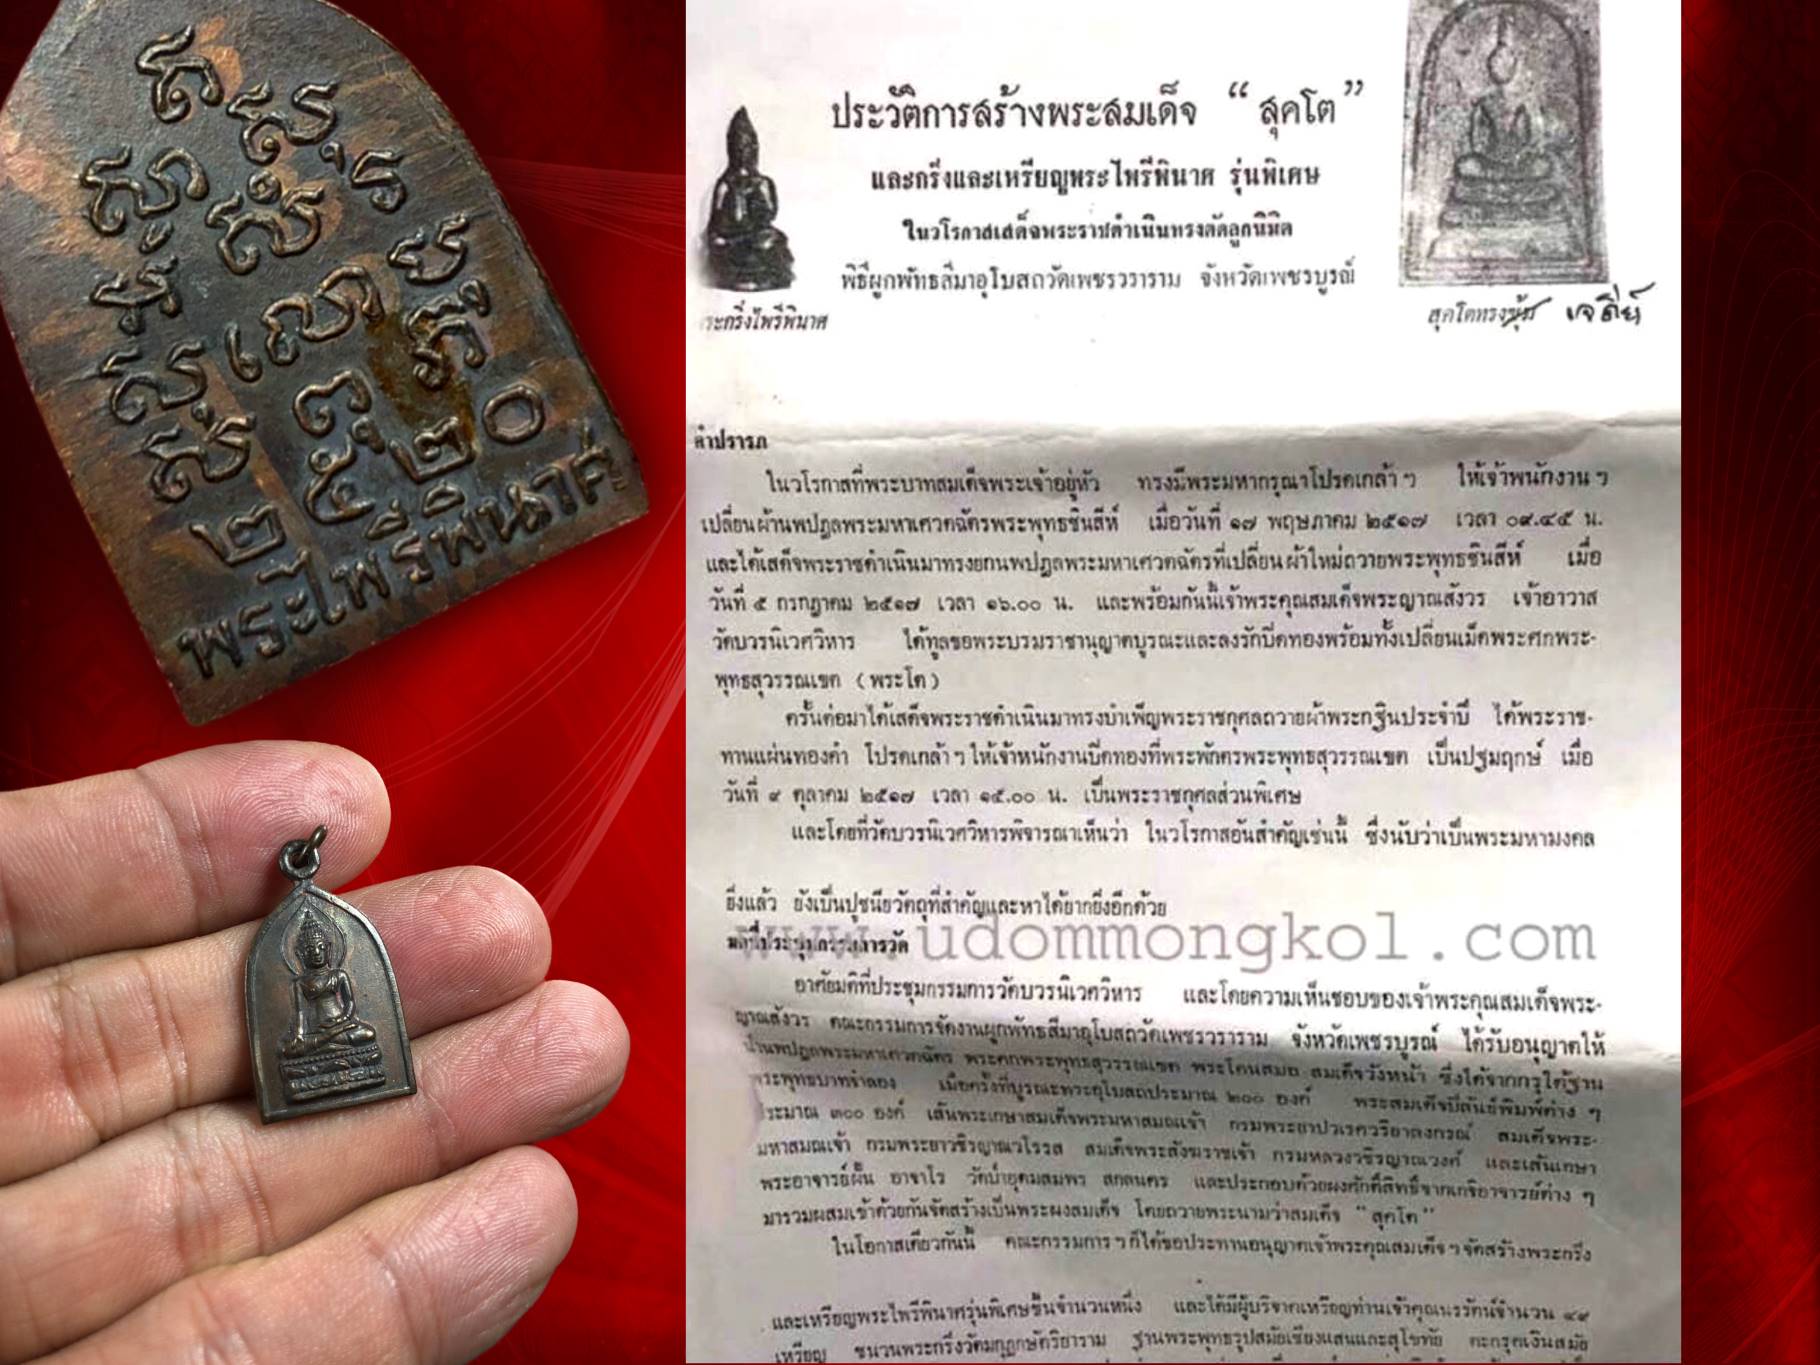 ๒๕๒๐
พระไพรีพินาศ
ประวัติการสร้างพระสมเด็จ “สุคโต”
และกริ่งและเหรียญพระไพรีพินาศ รุ่นพิเศษ
ในวโรกาสเสด็จพระราชดำเนินทรงตัดลูกนิมิต
พิธีผูกพัทธสีมาอุโบสถวัดเพชรวราราม จังหวัดเพชรบูรณ์
ระกริ่งไพรีพินาศ
สุคโตทรงซุ้ม เจดีย์
คำปรารภ
ในวโรกาสที่พระบาทสมเด็จพระเจ้าอยู่หัว ทรงมีพระมหากรุณาโปรดเกล้า ๆ ให้เจ้าพนักงาน ๆ
เปลี่ยนผ้านพปฎลพระมหาเศวตฉัตรพระพุทธชินสีห์ เมื่อวันที่ ๑๗ พฤษภาคม ๒๕๑๗ เวลา ๐๙.๔๕ น.
และได้เสด็จพระราชดำเนินมาทรงยกนพปฎลพระมหาเศวตฉัตรที่เปลี่ยนผ้าใหม่ถวายพระพุทธชินสีห์ เมื่อ
วันที่ ๕ กรกฎาคม ๒๕๑๗ เวลา ๑๖.๐๐ น. และพร้อมกันนี้เจ้าพระคุณสมเด็จพระญาณสังวร เจ้าอาวาส
วัดบวรนิเวศวิหาร ได้ทูลขอพระบรมราชานุญาตบูรณะและลงรักปิดทองพร้อมทั้งเปลี่ยนเม็ดพระศกพระ-
พุทธสุวรรณเขต (พระโต)
ครั้นต่อมาได้เสด็จพระราชดำเนินมาทรงบำเพ็ญพระราชกุศลถวายผ้าพระกฐินประจำปี ได้พระราช-
ทานแผ่นทองคำ โปรดเกล้า ๆ ให้เจ้าหนักงานปิดทองที่พระพักตรพระพุทธสุวรรณเขต เป็นปฐมฤกษ์ เมื่อ
วันที่ ๙ ตุลาคม ๒๕๑๗ เวลา ๑๕.๐๐ น. เป็นพระราชกุศลส่วนพิเศษ
และโดยที่วัดบวรนิเวศวิหารพิจารณาเห็นว่า ในวโรกาสอันสำคัญเช่นนี้ ซึ่งนับว่าเป็นพระมหามงคล
ยิ่งแล้ว ยังเป็นปูชนียวัตถุที่สำคัญและหาได้ยากยิ่งอีกด้วย
www.udommongkol.com
มติที่ประชุมกรรมการวัด
อาศัยมติที่ประชุมกรรมการวัดบวรนิเวศวิหาร และโดยความเห็นชอบของเจ้าพระคุณสมเด็จพระ-
ญาณสังวร คณะกรรมการจัดงานผูกพัทธสีมาอุโบสถวัดเพชรวราราม จังหวัดเพชรบูรณ์ ได้รับอนุญาตให้
นำนพปฎลพระมหาเศวตฉัตร พระศกพระพุทธสุวรรณเขต พระโคนสมอ สมเด็จวังหน้า ซึ่งได้จากกรุใต้ฐาน
พระพุทธบาทจำลอง เมื่อครั้งที่บูรณะพระอุโบสถประมาณ ๒๐๐ องค์ พระสมเด็จปิลันธ์พิมพ์ต่าง ๆ
ประมาณ ๓๐๐ องค์ เส้นพระเกษาสมเด็จพระมหาสมณเจ้า กรมพระยาปวเรศวริยาลงกรณ์ สมเด็จพระ-
มหาสมณเจ้า กรมพระยาวชิรญาณวโรรส สมเด็จพระสังฆราชเจ้า กรมหลวงวชิรญาณวงศ์ และเส้นเกษา
พระอาจารย์ฝั้น อาจาโร วัดป่าอุดมสมพร สกลนคร และประกอบด้วยผงศักดิ์สิทธิ์จากเกจิอาจารย์ต่าง ๆ
มารวมผสมเข้าด้วยกันจัดสร้างเป็นพระผงสมเด็จ โดยถวายพระนามว่าสมเด็จ “สุคโต”
ในโอกาสเดียวกันนี้ คณะกรรมการ ๆ ก็ได้ขอประทานอนุญาตเจ้าพระคุณสมเด็จ ๆ จัดสร้างพระกริ่ง
และเหรียญพระไพรีพินาศรุ่นพิเศษขึ้นจำนวนหนึ่ง และได้มีผู้บริจาคเหรียญท่านเจ้าคุณนรรัตน์จำนวน ๔๙
เหรียญ ชนวนพระกริ่งวัดมกุฎกษัตริยาราม ฐานพระพุทธรูปสมัยเชียงแสนและสุโขทัย ตะกรุดเงินสมัย